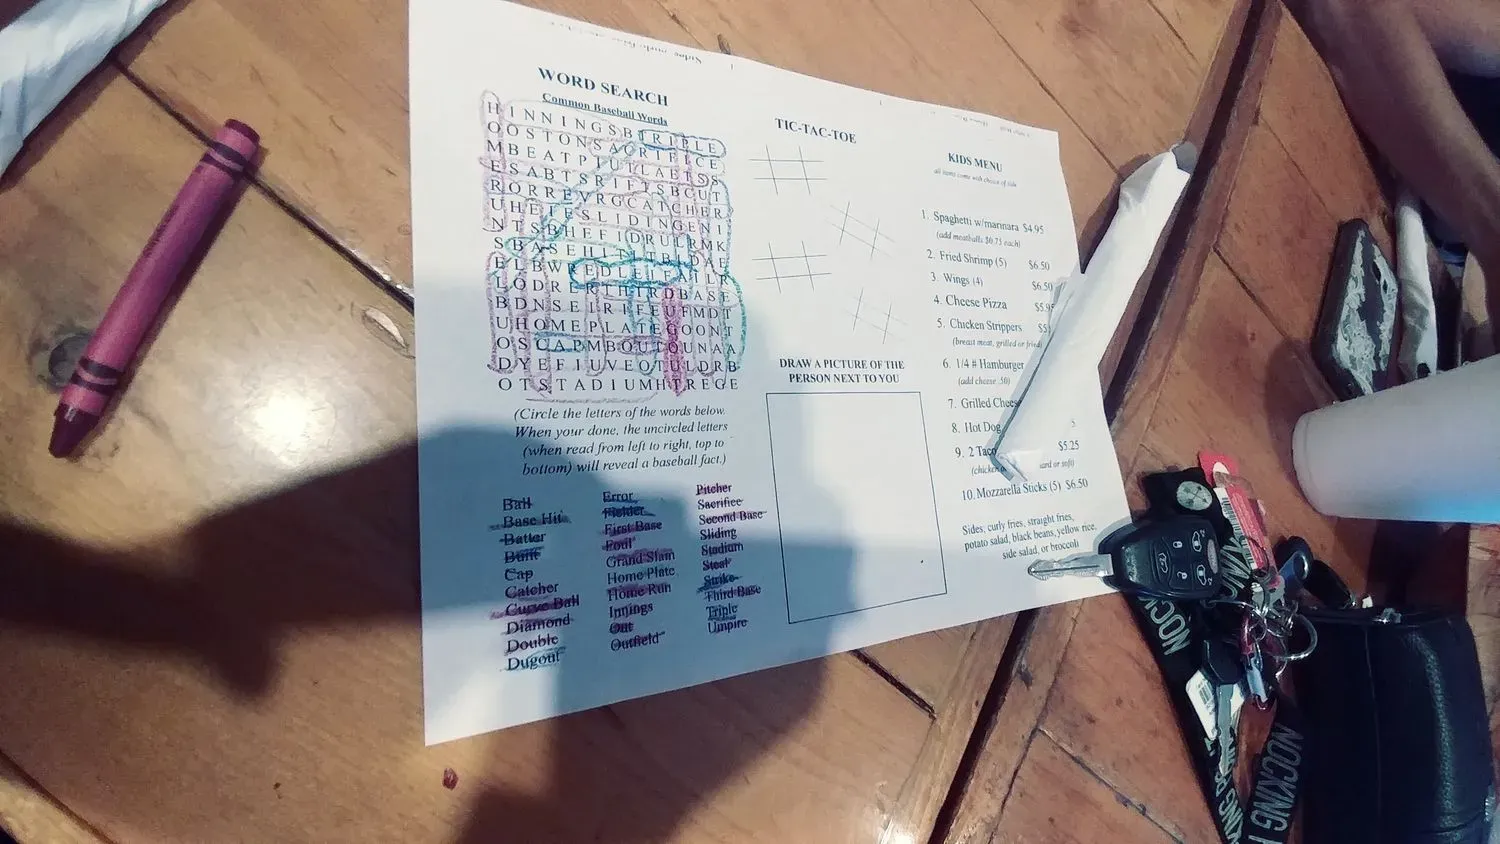 WORD SEARCH
Common Baseball Words
HINNINGSBTRIPLE
OOSTONSACRIFICE
MBEATPIUTLAETSS
ESABTSRIFTSBCUT
RORREVRGCATCHER
UHEFESLIDINGENI
NTSBHEFIDRULRMK
UHOMEPLATEGOONT
OSCAPMBOUTOUNAA
DYEFIUVEOTULDRB
OTSTADIUMHTREGE
(Circle the letters of the words below.
When your done, the uncircled letters
(when read from left to right, top to
bottom) will reveal a baseball fact.)
Ball
Base Hit
Batter
Bunt
Cap
Catcher
Curve Ball
Diamond
Double
Dugout
Error
Fielder
First Base
Foul
Grand Slam
Home Plate
Home Run
Innings
Out
Outfield
Pitcher
Sacrifice
Second Base
Sliding
Stadium
Steal
Strike
Third Base
Triple
Umpire
TIC-TAC-TOE
DRAW A PICTURE OF THE
PERSON NEXT TO YOU
KIDS MENU
all items come with choice of side
1. Spaghetti w/marinara $4.95
(add meatballs $0.75 each)
2. Fried Shrimp (5) $6.50
3. Wings (4) $6.50
4. Cheese Pizza
5. Chicken Strippers
(breast meat, grilled or fried)
6. 1/4 # Hamburger
(add cheese .50)
7. Grilled
8. Hot Dog
9. 2 $5.25
or soft)
10. Mozzarella Sticks (5) $6.50
Sides: curly fries, straight fries,
potato salad, black beans, yellow rice,
side salad, or broccoli
NOCKING